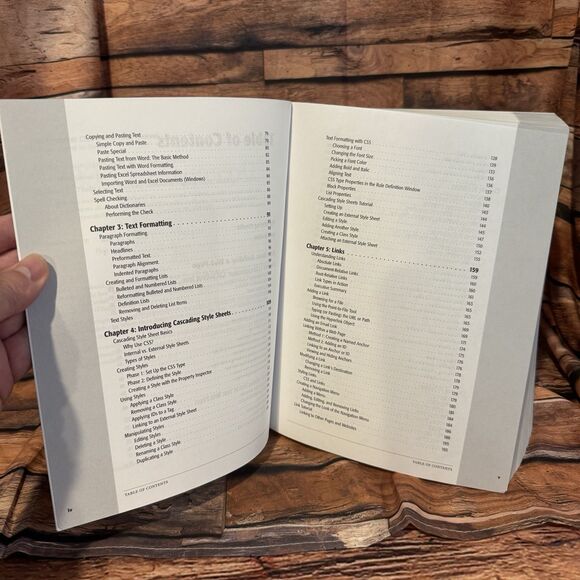 Copying and Pasting Text
Simple Copy and Paste
Paste Special
Pasting Text from Word: The Basic Method
Pasting Text with Word Formatting
Pasting Excel Spreadsheet Information
Importing Word and Excel Documents (Windows)
Selecting Text
Spell Checking
About Dictionaries
Performing the Check
Chapter 3: Text Formatting
Paragraph Formatting
Paragraphs
Headlines
Preformatted Text
Paragraph Alignment
Indented Paragraphs
Creating and Formatting Lists
Bulleted and Numbered Lists
Reformatting Bulleted and Numbered Lists
Definition Lists
Removing and Deleting List Items
Text Styles
Chapter 4: Introducing Cascading Style Sheets
Cascading Style Sheet Basics
Why Use CSS?
Internal vs. External Style Sheets
Types of Styles
Creating Styles
Phase 1: Set Up the CSS Type
Phase 2: Defining the Style
Creating a Style with the Property Inspector
Using Styles
Applying a Class Style
Removing a Class Style
Applying IDs to a Tag
Linking to an External Style Sheet
Manipulating Styles
Editing Styles
Deleting a Style
Renaming a Class Style
Duplicating a Style
iv
TABLE OF CONTENTS
Text Formatting with CSS
Choosing a Font
Changing the Font Size
Picking a Font Color
Adding Bold and Italic
Aligning Text
CSS Type Properties in the Rule Definition Window
Block Properties
List Properties
Cascading Style Sheets Tutorial
Setting Up
Creating an External Style Sheet
Editing a Style
Adding Another Style
Creating a Class Style
Attaching an External Style Sheet
Chapter 5: Links 159
Understanding Links
Absolute Links
Document-Relative Links
Root-Relative Links
Link Types in Action
Executive Summary
Adding a Link
Browsing for a File
Using the Point-to-File Tool
Typing (or Pasting) the URL or Path
Using the Hyperlink Object
Adding an Email Link
Linking Within a Web Page
Method 1: Creating a Named Anchor
Method 2: Adding an ID
Linking to an Anchor or ID
Viewing and Hiding Anchors
Modifying a Link
Changing a Link's Destination
Removing a Link
Styling Links
CSS and Links
Creating a Navigation Menu
Adding a Menu
Adding, Editing, and Removing Links
Changing the Look of the Navigation Menu
Link Tutorial
Linking to Other Pages and Websites
TABLE OF CONTENTS
v